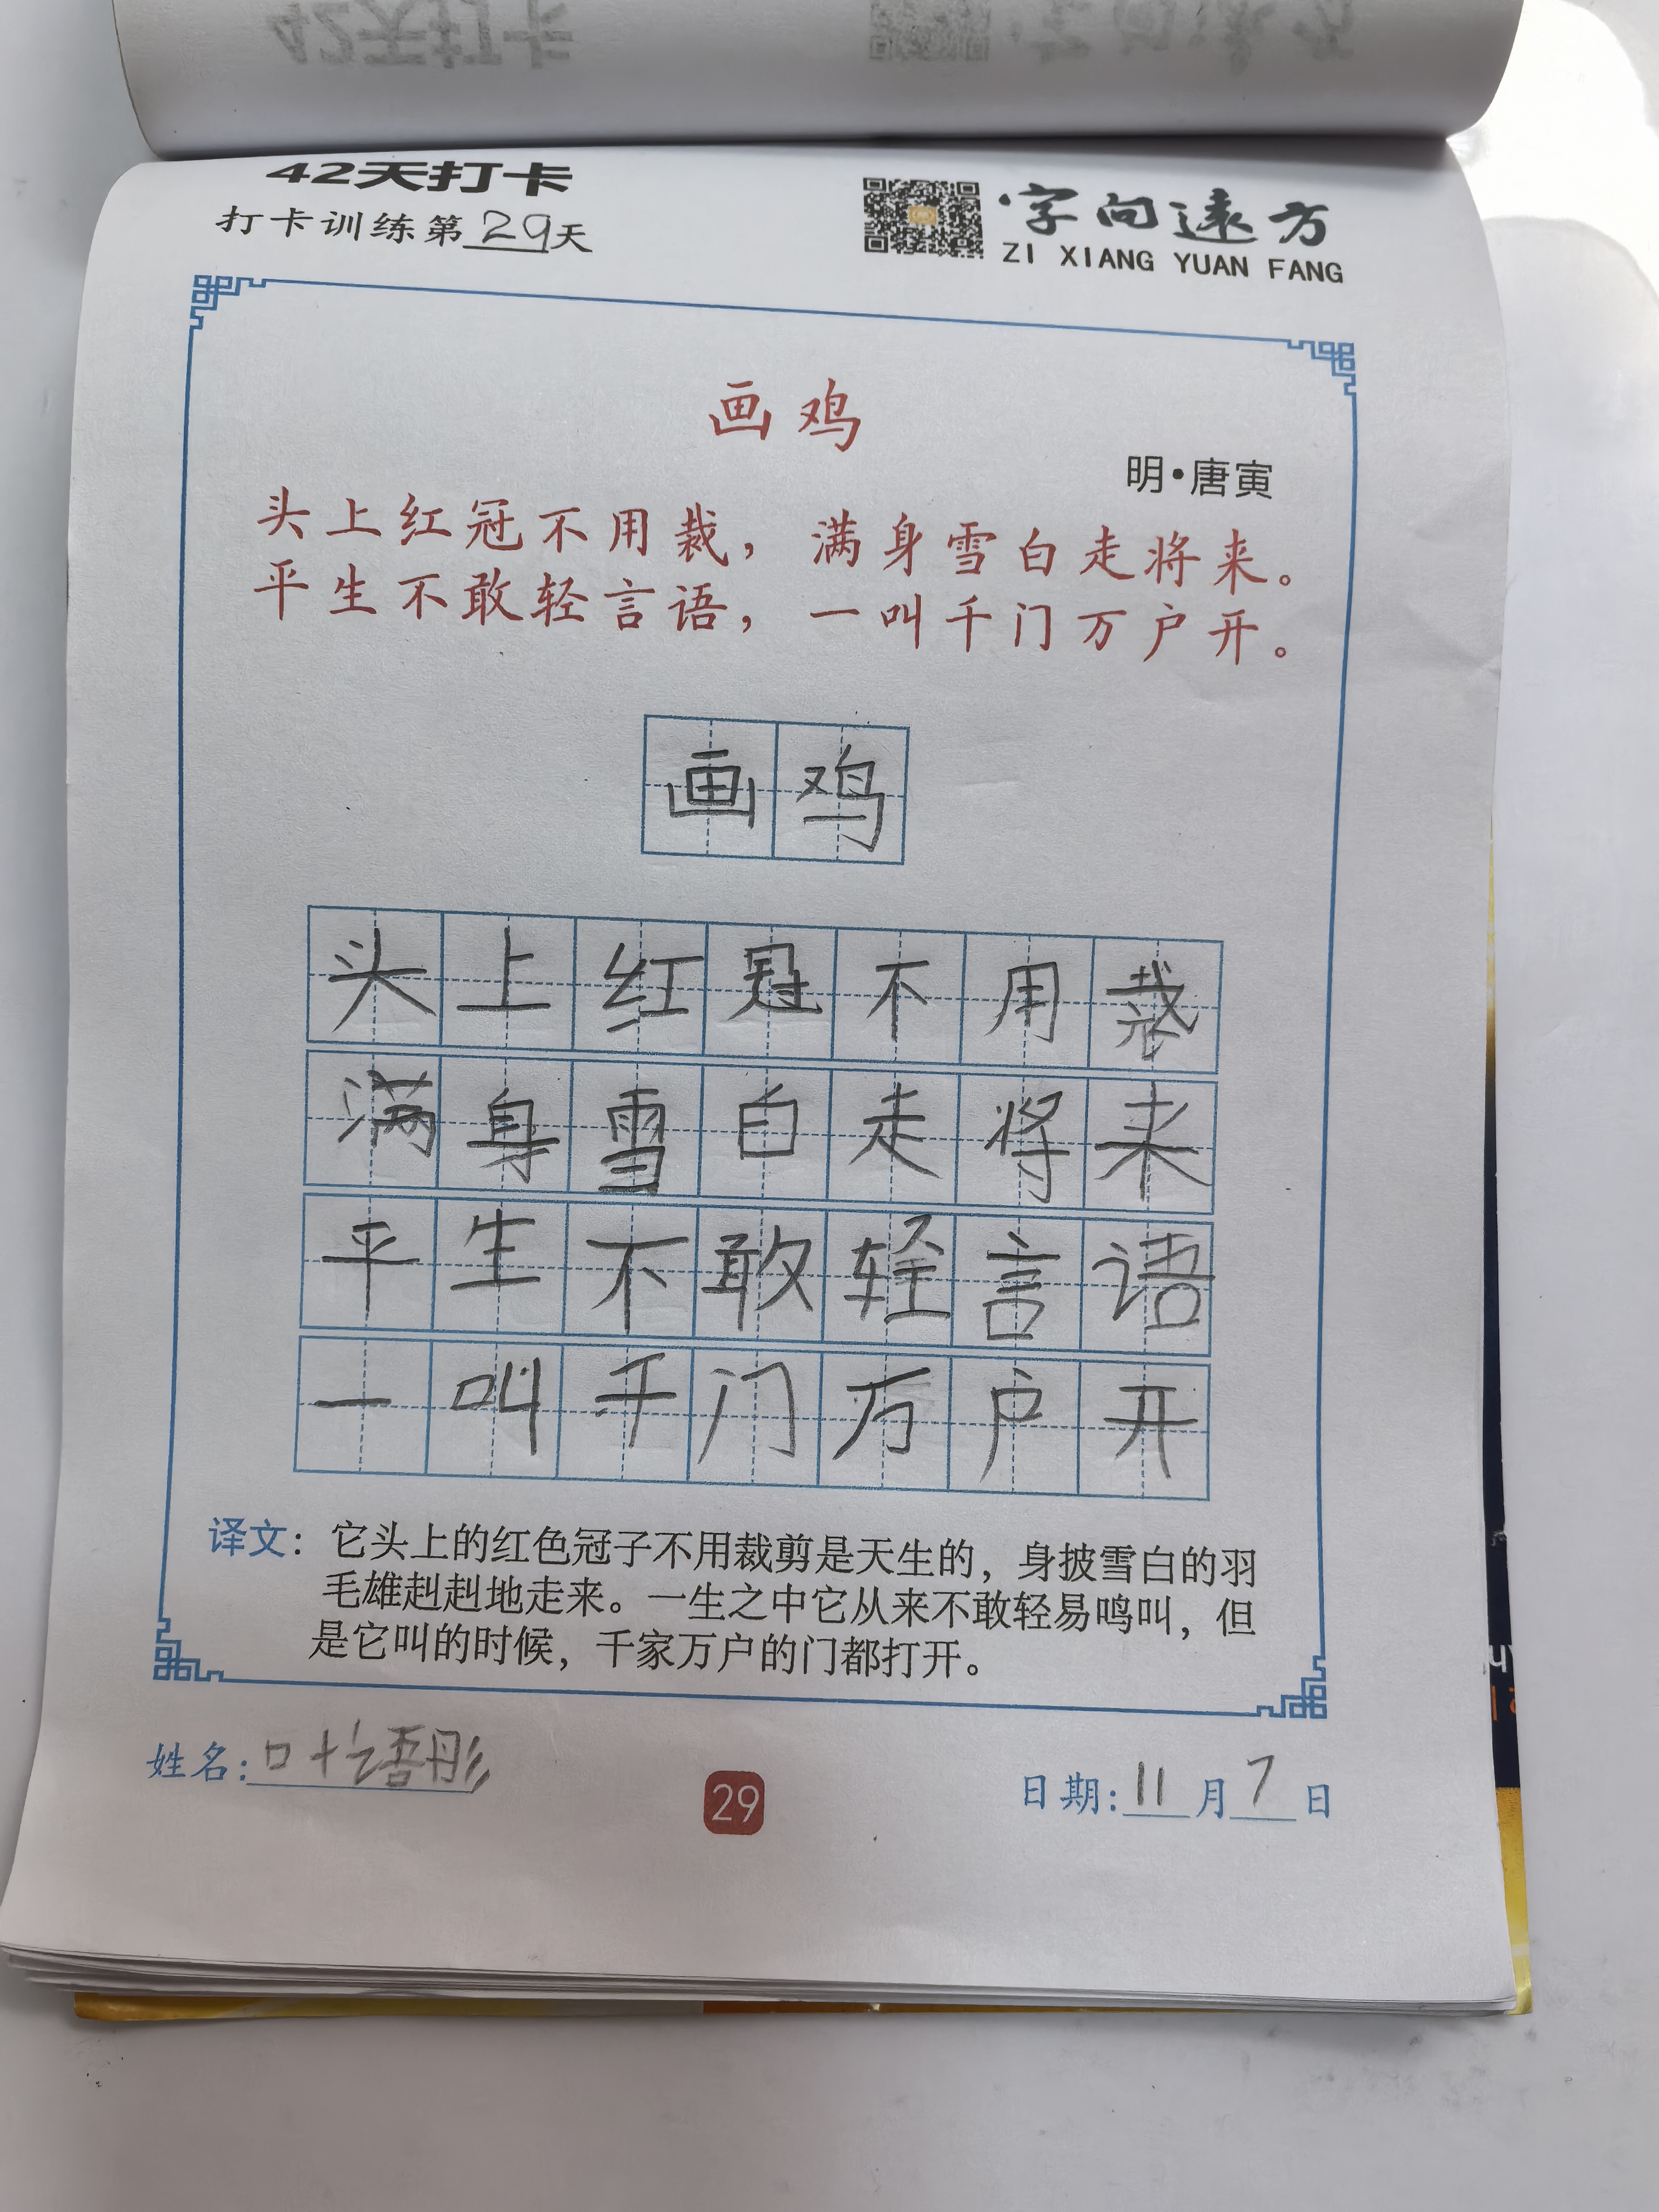 42天打卡
字向远方
42天打卡
打卡训练第29天
字向远方
ZI XIANG YUAN FANG
画鸡
明•唐寅
头上红冠不用裁，满身雪白走将来。
平生不敢轻言语，一叫千门万户开。
画鸡
头上红冠不用裁
满身雪白走将来
平生不敢轻言语
一叫千门万户开
译文：它头上的红色冠子不用裁剪是天生的，身披雪白的羽
毛雄赳赳地走来。一生之中它从来不敢轻易鸣叫，但
是它叫的时候，千家万户的门都打开。
姓名：叶语彤
29
日期：11月7日